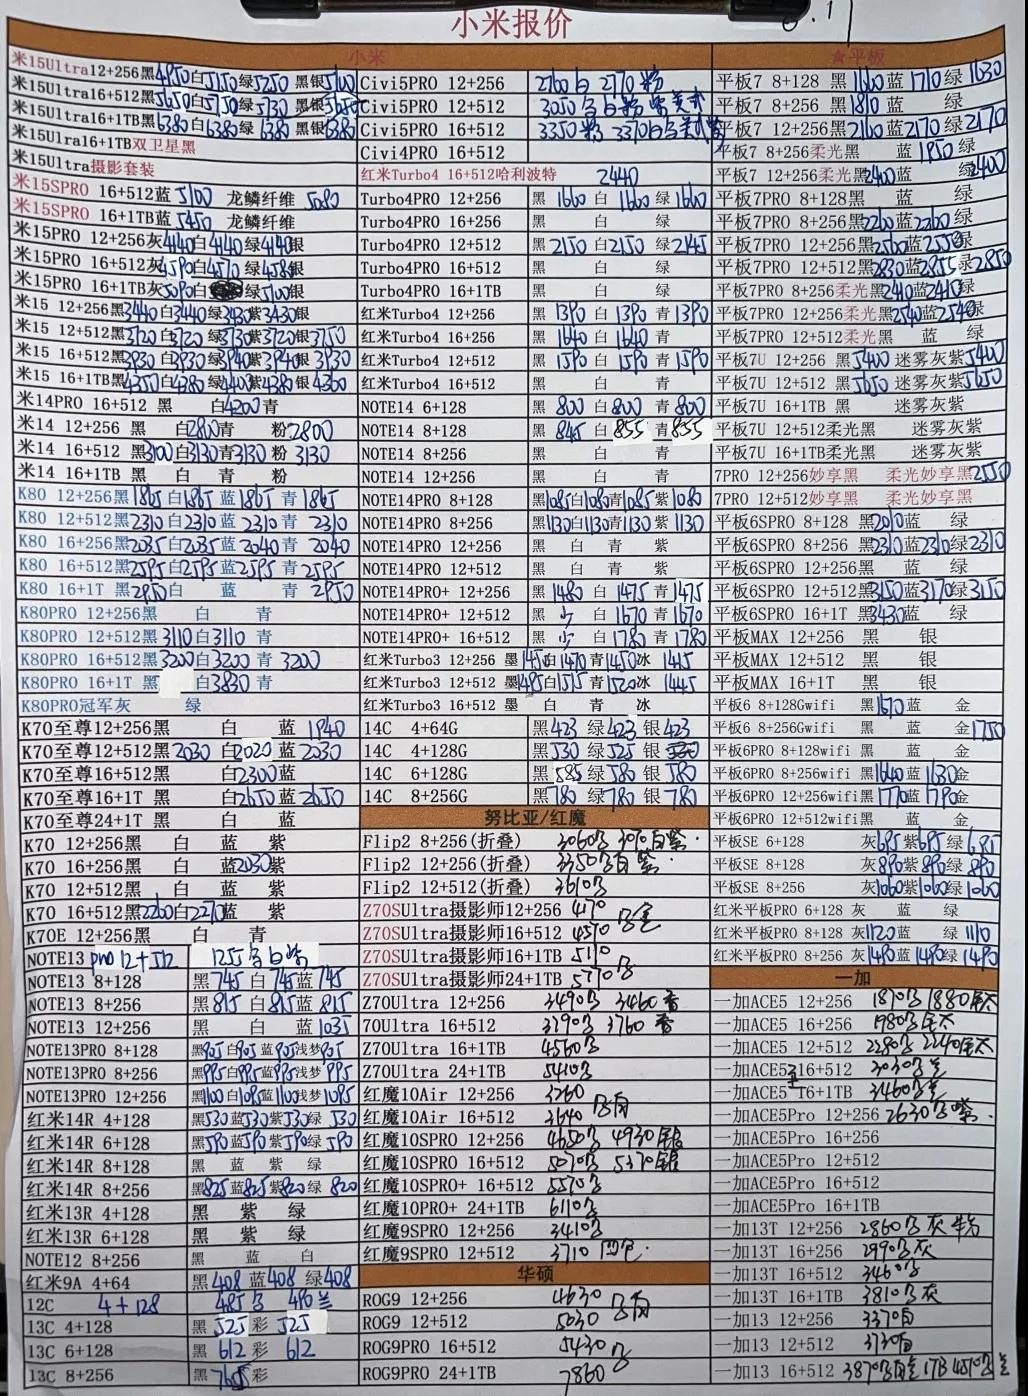 小米报价
6.17
小米
米15Ultra12+256黑4950白5150绿5250 黑银5100
米15Ultra16+512黑5650白5750绿5730 黑银5685
米15Ultra16+1TB黑6380白6380绿6380 黑银6380
米15Ulra16+1TB双卫星黑
米15Ultra摄影套装
米15SPRO 16+512蓝5100 龙鳞纤维5080
米15SPRO 16+1TB蓝5450 龙鳞纤维
米15PRO 12+256灰4140白4140绿4140银
米15PRO 16+512灰4590白4570绿458银
米15PRO 16+1TB灰5090白 绿5100银
米15 12+256黑3440白3440绿3430紫3430银
米15 12+512黑3720白3720绿3730紫3720银3750
米15 16+512黑3930白3930绿3940紫3940银3930
米15 16+1TB黑4350白4380绿4400紫4380银4360
米14PRO 16+512 黑 白4200青
米14 12+256 黑 白2800青 粉2800
米14 16+512 黑3100白3130青3130 粉3130
米14 16+1TB 黑 白 青 粉
K80 12+256黑1865白1865蓝1865青1865
K80 12+512黑2310白2310蓝2310青2310
K80 16+256黑2035白2035蓝2040青2040
K80 16+512黑2595白2595蓝2595青2595
K80 16+1T 黑2950白 蓝 青2950
K80PRO 12+256黑 白 青
K80PRO 12+512黑3110白3110 青
K80PRO 16+512黑3200白3200 青3200
K80PRO 16+1T 黑 白3830青
K80PRO冠军灰 绿
K70至尊12+256黑 白 蓝1940
K70至尊12+512黑2030白2020蓝2030
K70至尊16+512黑 白2300蓝
K70至尊16+1T 黑 白2650蓝2650
K70至尊24+1T 黑 白 蓝
K70 12+256黑 白 蓝 紫
K70 16+256黑 白 蓝2030紫
K70 12+512黑 白 蓝 紫
K70 16+512黑2260白2270蓝 紫
K70E 12+256黑 白 青
NOTE13 pro 12+512 1255
NOTE13 8+128 黑745白745蓝745
NOTE13 8+256 黑815白815蓝815
NOTE13 12+256 黑 白 蓝1035
NOTE13PRO 8+128 黑905白905蓝905浅梦905
NOTE13PRO 8+256 黑995白995蓝995浅梦995
NOTE13PRO 12+256 黑1100白1095蓝1100浅梦1095
红米14R 4+128 黑530蓝530紫530绿530
红米14R 6+128 黑590蓝590紫590绿590
红米14R 8+128 黑 蓝 紫 绿
红米14R 8+256 黑825蓝825紫820绿820
红米13R 4+128 黑 紫 绿
红米13R 6+128 黑 紫 绿
NOTE12 8+256 黑 蓝 白
红米9A 4+64 黑408蓝408绿408
12C 4+128 485 490兰
13C 4+128 黑525彩525
13C 6+128 黑612彩612
13C 8+256 黑 彩
Civi5PRO 12+256 2760白 2770粉
Civi5PRO 12+512 3050
Civi5PRO 16+512 3350粉 3370
Civi4PRO 16+512
红米Turbo4 16+512哈利波特 2440
Turbo4PRO 12+256 黑1660白1660绿1660
Turbo4PRO 16+256 黑 白 绿
Turbo4PRO 12+512 黑2150白2150绿2145
Turbo4PRO 16+512 黑 白 绿
Turbo4PRO 16+1TB 黑 白 绿
红米Turbo4 12+256 黑1390白1390青1390
红米Turbo4 16+256 黑1640白1640青
红米Turbo4 12+512 黑1590白1590青1590
红米Turbo4 16+512 黑 白 青
NOTE14 6+128 黑800白800青800
NOTE14 8+128 黑845白855青855
NOTE14 8+256 黑 白 青
NOTE14 12+256 黑 白 青
NOTE14PRO 8+128 黑1085白1080青1085紫1080
NOTE14PRO 8+256 黑1130白1130青1130紫1130
NOTE14PRO 12+256 黑 白 青 紫
NOTE14PRO 12+512 黑 白 青 紫
NOTE14PRO+ 12+256 黑1480白1475青1475
NOTE14PRO+ 12+512 黑少白1670青1670
NOTE14PRO+ 16+512 黑少白1780青1780
红米Turbo3 12+256 墨1450白1470青1450冰1415
红米Turbo3 12+512 墨1495白1515青1520冰1445
红米Turbo3 16+512 墨 白 青 冰
14C 4+64G 黑423绿423银423
14C 4+128G 黑530绿525银530
14C 6+128G 黑585绿580银580
14C 8+256G 黑780绿780银780
努比亚/红魔
Flip2 8+256(折叠) 3060
Flip2 12+256(折叠) 3350
Flip2 12+512(折叠) 3610
Z70SUltra摄影师12+256
Z70SUltra摄影师16+512 4570
Z70SUltra摄影师16+1TB 5110
Z70SUltra摄影师24+1TB 5770
Z70Ultra 12+256 3490 3460
70Ultra 16+512 3790 3760
Z70Ultra 16+1TB 4560
Z70Ultra 24+1TB 5410
红魔10Air 12+256 3260
红魔10Air 16+512 3640
红魔10SPRO 12+256 4650 4930银
红魔10SPRO 16+512 5070 5370银
红魔10SPRO+ 16+512 5570
红魔10PRO+ 24+1TB 6110
红魔9SPRO 12+256 3410
红魔9SPRO 12+512 3710
华硕
ROG9 12+256 4630
ROG9 12+512 5030
ROG9PRO 16+512 5430
ROG9PRO 24+1TB 7860
★平板
平板7 8+128 黑1660蓝1710绿1630
平板7 8+256 黑1810蓝 绿
平板7 12+256黑2160蓝2170绿2170
平板7 8+256柔光黑 蓝1950绿
平板7 12+256柔光黑2400蓝 绿2400
平板7PRO 8+128黑 蓝 绿
平板7PRO 8+256黑2260蓝2260绿
平板7PRO 12+256黑2560蓝2550绿
平板7PRO 12+512黑2830蓝2855绿2850
平板7PRO 8+256柔光黑2410蓝2415绿
平板7PRO 12+256柔光黑2540蓝2540绿
平板7PRO 12+512柔光黑 蓝 绿
平板7U 12+256 黑5400迷雾灰紫5400
平板7U 12+512 黑5650迷雾灰紫5650
平板7U 16+1TB 黑 迷雾灰紫
平板7U 12+512柔光黑 迷雾灰紫
平板7U 16+1TB柔光黑 迷雾灰紫
7PRO 12+256妙享黑 柔光妙享黑2550
7PRO 12+512妙享黑 柔光妙享黑
平板6SPRO 8+128 黑2010蓝 绿
平板6SPRO 8+256 黑2310蓝2310绿2310
平板6SPRO 12+256黑 蓝 绿
平板6SPRO 12+512黑3150蓝3170绿3150
平板6SPRO 16+1T 黑3430蓝 绿
平板MAX 12+256 黑 银
平板MAX 12+512 黑 银
平板MAX 16+1T 黑 银
平板6 8+128Gwifi 黑1570蓝 金
平板6 8+256Gwifi 黑 蓝 金1750
平板6PRO 8+128wifi 黑 蓝 金
平板6PRO 8+256wifi 黑1640蓝1630金
平板6PRO 12+256wifi黑1770蓝1790金
平板6PRO 12+512wifi黑 蓝 金
平板SE 6+128 灰695紫695绿685
平板SE 8+128 灰890紫890绿890
平板SE 8+256 灰1060紫1060绿1060
红米平板PRO 6+128 灰 蓝 绿
红米平板PRO 8+128 灰1120蓝 绿1110
红米平板PRO 8+256 灰1490蓝1490绿1490
一加
一加ACE5 12+256 1870 1880
一加ACE5 16+256 1980
一加ACE5 12+512 2280 2240
一加ACE5 16+512 3030
一加ACE5 16+1TB 3460
一加ACE5Pro 12+256 2630
一加ACE5Pro 16+256
一加ACE5Pro 12+512
一加ACE5Pro 16+512
一加ACE5Pro 16+1TB
一加13T 12+256 2860
一加13T 16+256 2990
一加13T 16+512 3460
一加13T 16+1TB 3810
一加13 12+256 3370
一加13 12+512 3730
一加13 16+512 3870